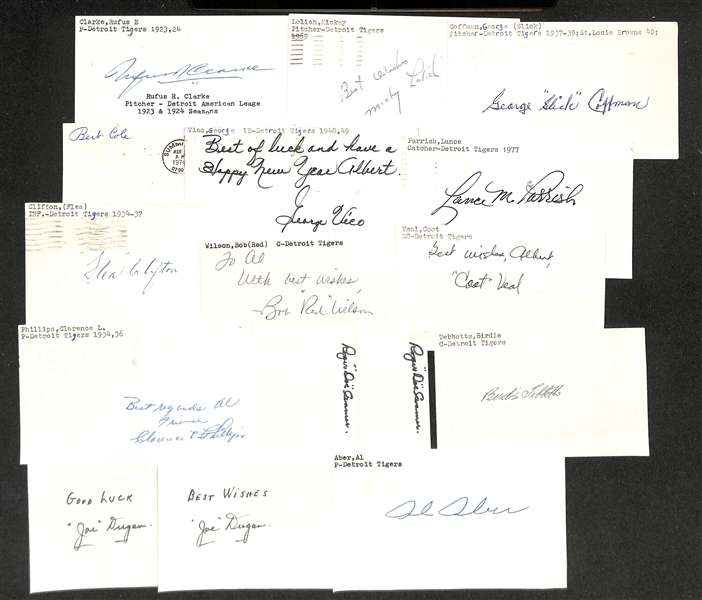 Clarke,Rufus E
P-Detroit Tigers 1923,24
Rufus R. Clarke
Rufus R. Clarke
Pitcher - Detroit American Leage
1923 & 1924 Seasons
Lolich,Mickey
Pitcher-Detroit Tigers
1969
Best Wishes
Mickey Lolich
Coffman,George (Slick)
Pitcher-Detroit Tigers 1937-39;St.Louis Browns 40;
George "Slick" Coffman
Bert Cole
SUMMIT
1974
Vico,George 1B-Detroit Tigers 1948,49
Best of luck and have a
Happy New Year Albert.
George Vico
Parrish,Lance
Catcher-Detroit Tigers 1977
Lance M. Parrish
Clifton,(Flea)
INF.-Detroit Tigers 1934-37
Flea Clifton
Wilson,Bob(Red) C-Detroit Tigers
To Al
With best wishes,
Bob "Red" Wilson
Veal,Coot
SS-Detroit Tigers
Best wishes, Albert,
"Coot" Veal
Phillips,Clarence L.
P-Detroit Tigers 1934,36
Best regards Al
Friend
Clarence L. Phillips
Roger "Doc" Cramer.
Roger "Doc" Cramer.
Tebbetts,Birdie
C-Detroit Tigers
Birdie Tebbetts
Good Luck
"Joe" Dugan.
Best Wishes
"Joe" Dugan.
Aber,Al
P-Detroit Tigers
Al Aber